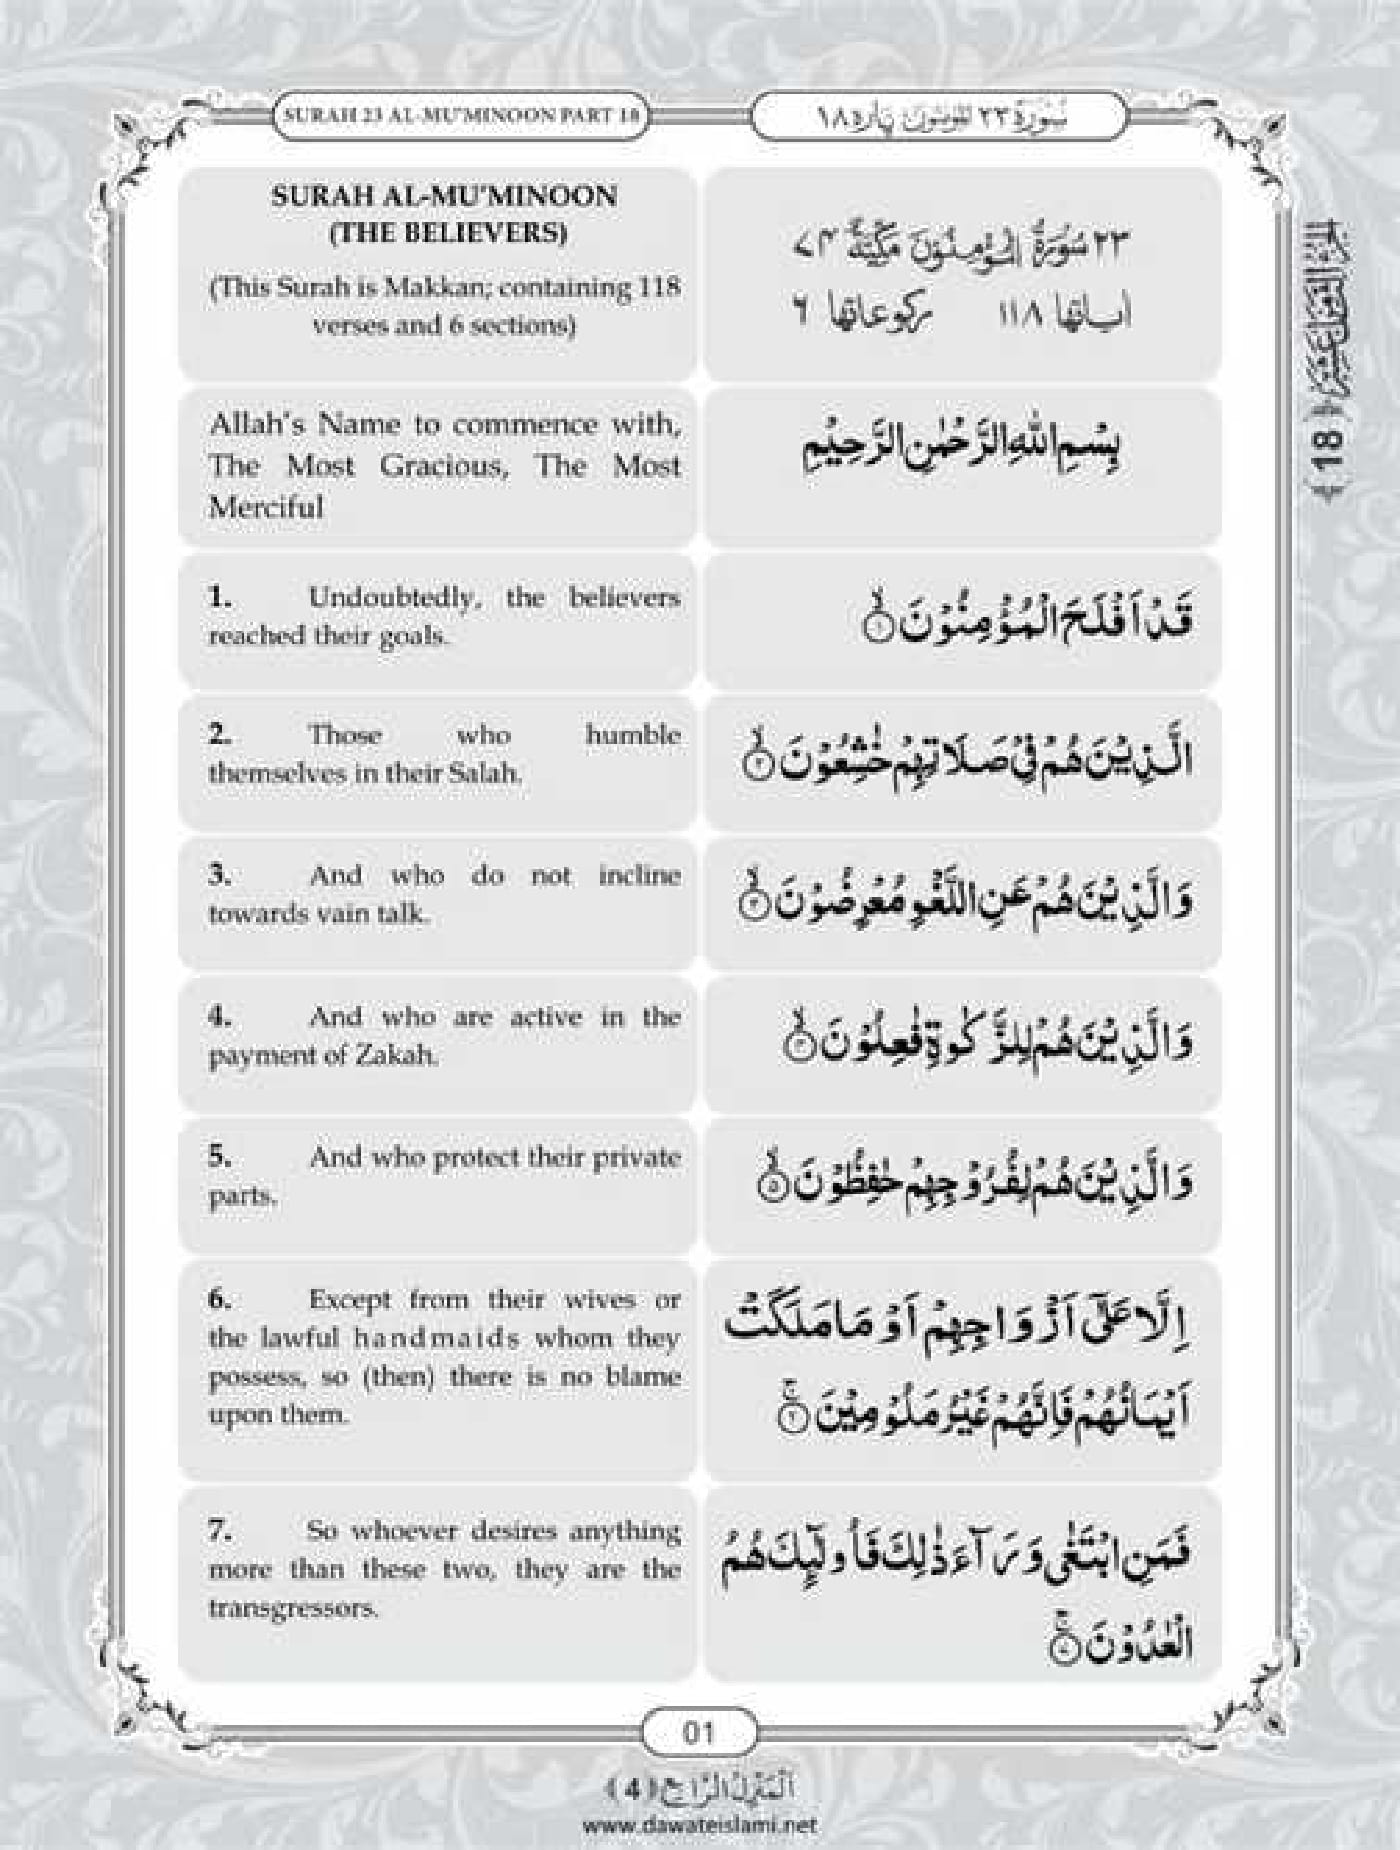 SURAH 23 AL-MU'MINOON PART 18
سُوْرَةُ ٢٣ الْمُؤْمِنُوْنَ پاره ١٨
SURAH AL-MU'MINOON
(THE BELIEVERS)
(This Surah is Makkan; containing 118
verses and 6 sections)
٢٣ سُوْرَةُ الْمُؤْمِنُوْنَ مَكِّيَّةٌ ٧٤
اٰیاتها ١١٨ رکوعاتها ٦
Allah's Name to commence with,
The Most Gracious, The Most
Merciful
بِسْمِ اللهِ الرَّحْمٰنِ الرَّحِيْمِ
1. Undoubtedly, the believers
reached their goals.
قَدْ اَفْلَحَ الْمُؤْمِنُوْنَ ۙ﴿۱﴾
2. Those who humble
themselves in their Salah.
الَّذِيْنَ هُمْ فِيْ صَلَاتِهِمْ خٰشِعُوْنَ ۙ﴿۲﴾
3. And who do not incline
towards vain talk.
وَ الَّذِيْنَ هُمْ عَنِ اللَّغْوِ مُعْرِضُوْنَ ۙ﴿۳﴾
4. And who are active in the
payment of Zakah.
وَ الَّذِيْنَ هُمْ لِلزَّكٰوةِ فٰعِلُوْنَ ۙ﴿۴﴾
5. And who protect their private
parts.
وَ الَّذِيْنَ هُمْ لِفُرُوْجِهِمْ حٰفِظُوْنَ ۙ﴿۵﴾
6. Except from their wives or
the lawful handmaids whom they
possess, so (then) there is no blame
upon them.
اِلَّا عَلٰۤى اَزْوَاجِهِمْ اَوْ مَا مَلَكَتْ
اَيْمَانُهُمْ فَاِنَّهُمْ غَيْرُ مَلُوْمِيْنَ ۚ﴿۶﴾
7. So whoever desires anything
more than these two, they are the
transgressors.
فَمَنِ ابْتَغٰى وَرَآءَ ذٰلِكَ فَاُولٰٓىِٕكَ هُمُ
الْعٰدُوْنَ ۚ﴿۷﴾
اَلْجُزْءُ الثَّامِنُ عَشَرَ ﴿18﴾
01
اَلْمَنْزِلُ الرَّابِعُ ﴿4﴾
www.dawateislami.net